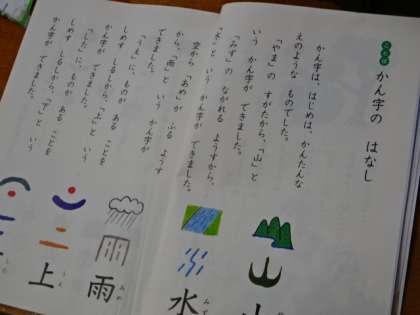 かん字の　はなし
かん字は、はじめは、かんたんな
えのような　ものでした。
「やま」の　すがたから、「山」と
いう　かん字が　できました。
「みず」の　ながれる　ようすから、
「水」と　いう　かん字が　できました。
空から　「あめ」が　ふる　ようす
から、「雨」と　いう　かん字が
できました。
「うえ」に、ものが　ある　ことを
しめす　しるしから、「上」と　いう
かん字が　できました。
「した」に、ものが　ある　ことを
しめす　しるしから、「下」と　いう
かん字が　できました。
水
みず
雨
あめ
上
うえ